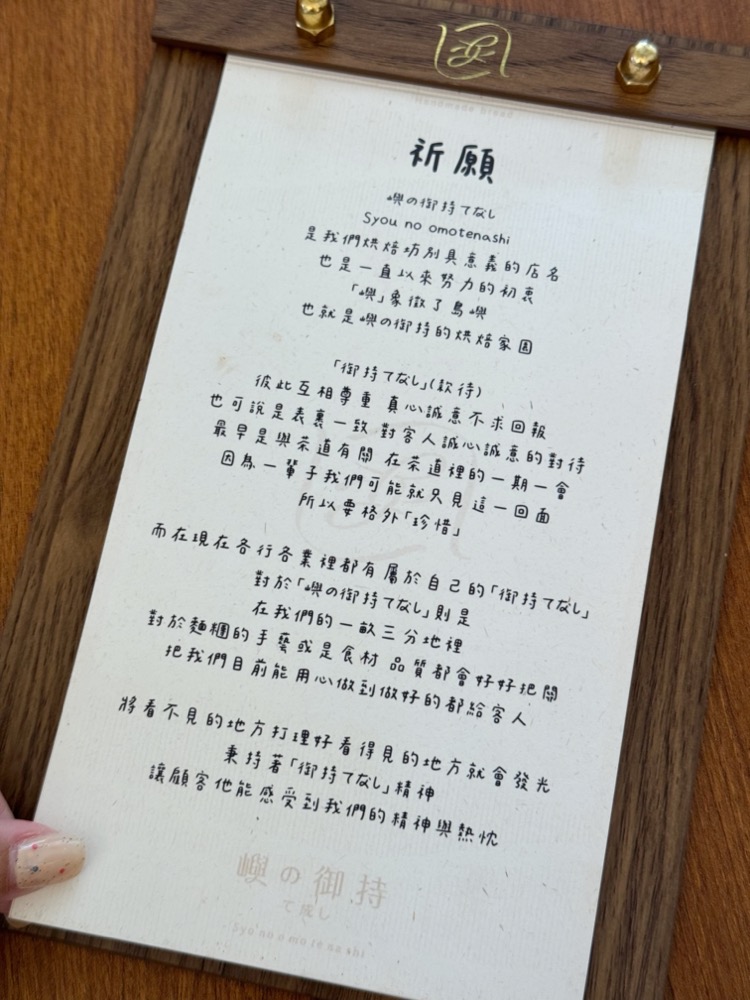 Handmade bread
祈願
嶼の御持てなし
Syou no omotenashi
是我們烘焙坊別具意義的店名
也是一直以來努力的初衷
「嶼」象徵了島嶼
也就是嶼の御持的烘焙家園
「御持てなし」(款待)
彼此互相尊重 真心誠意不求回報
也可說是表裏一致 對客人誠心誠意的對待
最早是與茶道有關 在茶道裡的一期一會
因為一輩子我們可能就只見這一回面
所以要格外「珍惜」
而在現在各行各業裡都有屬於自己的「御持てなし」
對於「嶼の御持てなし」則是
在我們的一畝三分地裡
對於麵糰的手藝或是食材 品質都會好好把關
把我們目前能用心做到做好的都給客人
將看不見的地方打理好看得見的地方就會發光
秉持著「御持てなし」精神
讓顧客他能感受到我們的精神與熱忱
嶼の御持
て成し
Syo no o mo te na shi